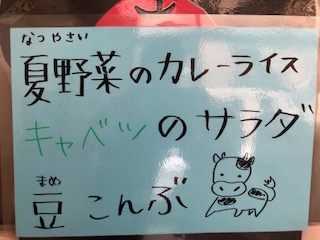 なつやさい
夏野菜のカレーライス
キャベツのサラダ
まめ
豆こんぶ